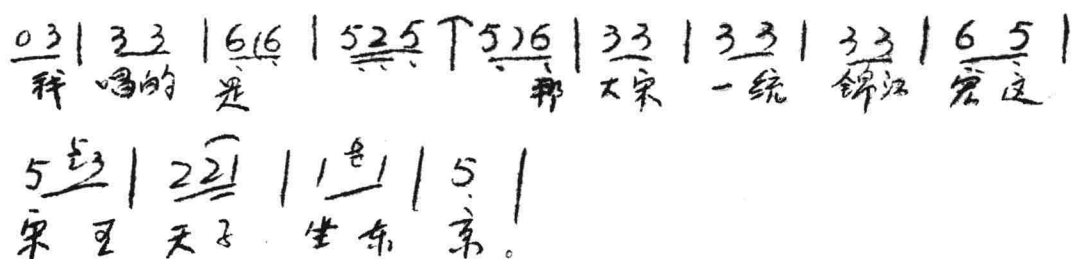 0 3 | 3 3 | 6 (6 | 5 2 5 ↑ 5 ) 6 | 3 3 | 3 3 | 3 3 | 6 5 |
我 唱的 是 那 大宋 一统 锦江 宏 这
5 5 3 | 2 2 1 | 1 6 1 | 5 |
宋 王 天子 坐 东 京。